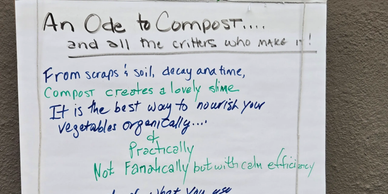 An Ode to Compost....
and all the critters who MAKE it!
From scraps & soil, decay and time,
Compost creates a lovely slime
It is the best way to nourish your
vegetables organically....
&
Practically
Not Fanatically but with calm efficiency
what you use